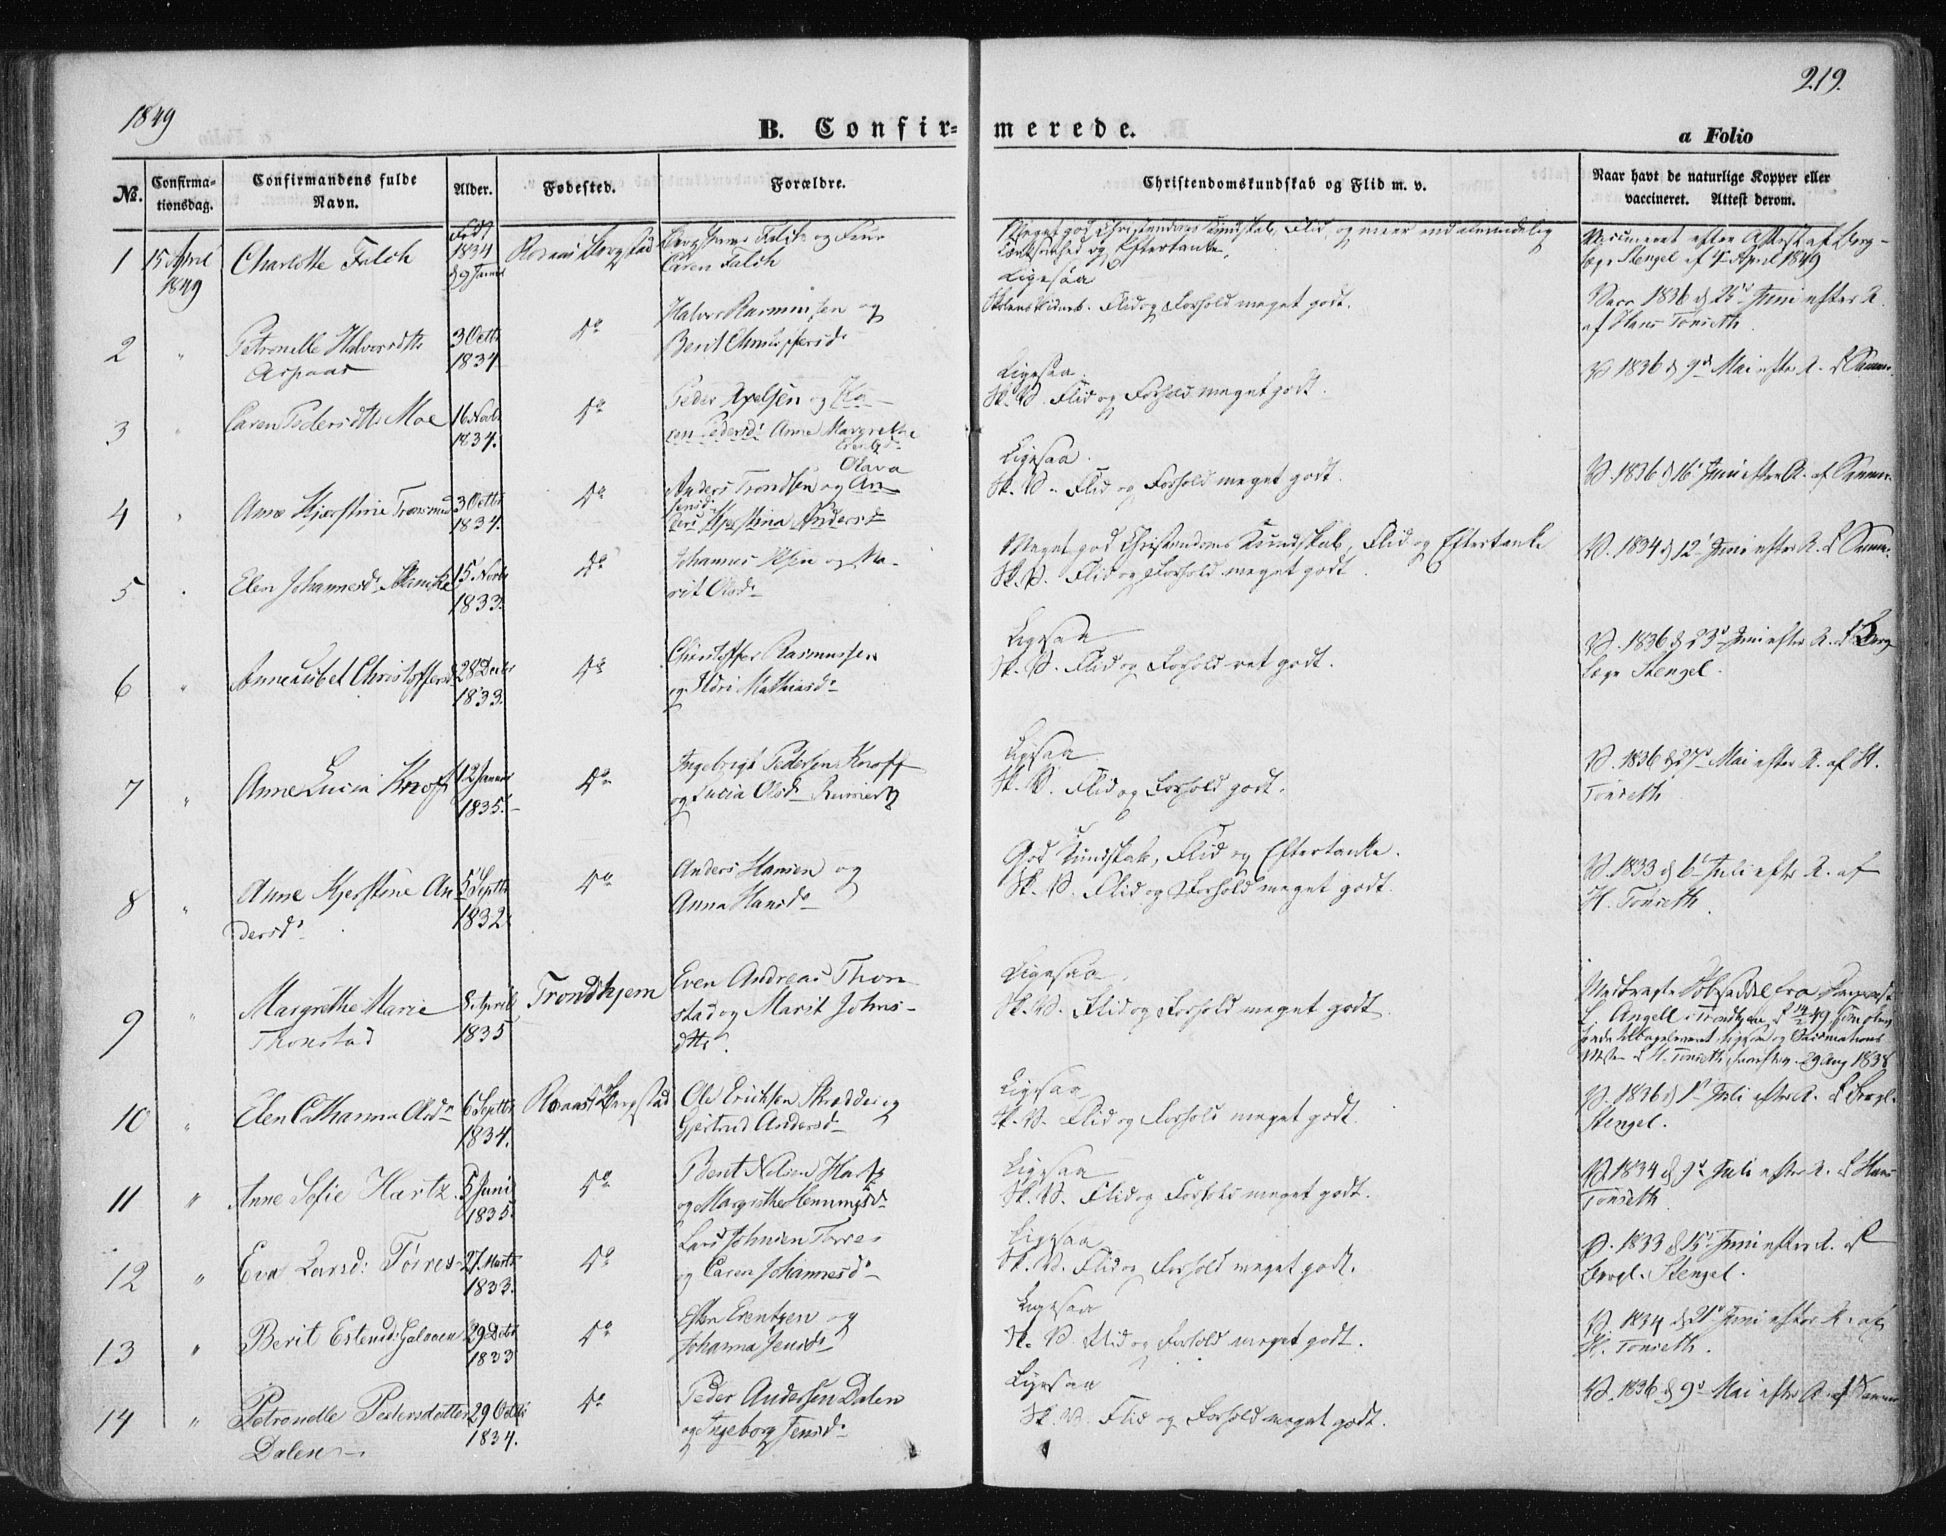 1849
219.
B. Confir=
merede.
a Folio
No.
Confirma-
tionsdag.
Confirmandens fulde
Navn.
Alder.
Fødested.
Forældre.
Christendomskundskab og Flid m. v.
Naar havt de naturlige Kopper eller
vaccineret. Attest derom.
1
15 April
1849
Charlotte Falch
Født
1834
Falch og Frue
Caren Falch
Meget god Christendoms Kundskab, Flid og meer end almindelig
Tænksomhed og Eftertanke.
Ligesaa
Vaccineret efter Attest af Berg-
læge Stengel af 4 April 1849
2
"
Petronelle Halvorsdtr
Aspaas
3 Octb
1834
do
Halvor Rasmussen og
Berit Christophersd
Flid og Forhold meget godt.
Vacc 1836 d 25 Juni efter A.
af Hans Tonseth
3
"
Caren Pedersdtr Moe
16 Novb
1834.
do
Peder Axelsen og Ka-
ren Pedersd Anne Margrethe
Ligesaa.
Sk. V. Flid og Forhold meget godt.
V 1836 d 9 Mai efter A. af Samme.
4
"
Anne Kjerstine Tronsmed
3 Octb
1834.
do
Olava
Anders Trondsen og An
ders Kjerstina Andersd
Ligesaa.
Sk. V. Flid og Forhold meget godt.
V. 1836 d 16 Juni efter A. af Samme.
5
"
Elen Johannesd
15 Novb
1833.
do
Johannes Olsen og Ma-
rit Olsd
Meget god Christendoms Kundskab, Flid og Eftertanke
Sk. V. Flid og Forhold meget godt.
V. 1834 d 12 Juni efter A. af Samme.
6
"
Anne Lisbet Christophersd
28 Decb
1833.
do
Christopher Rasmussen
og Ildri Mathiasd
Ligesaa
Sk. V. Flid og Forhold ret godt.
V. 1836 d 23 Juni efter A. af Berg
læge Stengel.
7
"
Anne Lucia Knoff
12 Januar
1835.
do
Ingebrigt Pedersen Knoff
og Lucia Olsd
Ligesaa
Sk. V. Flid og Forhold godt.
V. 1836 d 27 Mai efter A. af H.
Tonseth
8
"
Anne Kjerstine An
dersd
5 Septb
1832.
do
Anders Hansen og
Anna Hansd
God Kundskab, Flid og Eftertanke.
Sk. V. Flid og Forhold meget godt.
V. 1833 d 6 Juli efter A. af
H. Tonseth.
9
"
Margrethe Marie
Thonstad
8 April
1835
Trondhjem
Even Andreas Thon
stad og Marit Johns-
dtr.
Ligesaa.
Sk. V. Flid og Forhold meget godt.
Medbragte Døbseddel fra
Angell i Trondhjem
H. Tonseth 29 Aug 1838
10
"
Elen Cathrina Olsd
6 Septb
1834.
Ole Eriksen Skrædder og
Gjertrud Andersd
Ligesaa
Sk. V. Flid og Forhold meget godt.
V. 1836 d 1 Juli efter A. af Bergl.
Stengel.
11
"
Anne Sofie Hartz
5 Juni
1835.
do
Bent Nelsen Hartz
og Margrethe Henningsd
Ligesaa
Sk. V. Flid og Forhold meget godt.
V. 1834 d 9 Juli efter A. af Hans
Tonseth.
12
"
Eva Larsd: Torres
27 Marts
1833.
do
Lars Johnsen Torres
og Caren Johannesd
Ligesaa
Sk. V. Flid og Forhold meget godt.
V. 1833 d 15 Juni efter A. af
Bergl. Stengel.
13
"
Berit Estensd: Galaaen
1833
do
Esten Erentsen og
Johanna Jensd
Ligesaa
Sk. V. Flid og Forhold meget godt.
V. 1834 d 21 Juni efter A. af
H. Tonseth.
14
"
Petronelle Pedersdatter
Dalen
29 Octb
1834.
do
Peder Andersen Dalen
og Ingeborg Jensd
Ligesaa
Sk. V. Flid og Forhold meget godt.
V. 1836 d 9 Mai efter A. af Samme